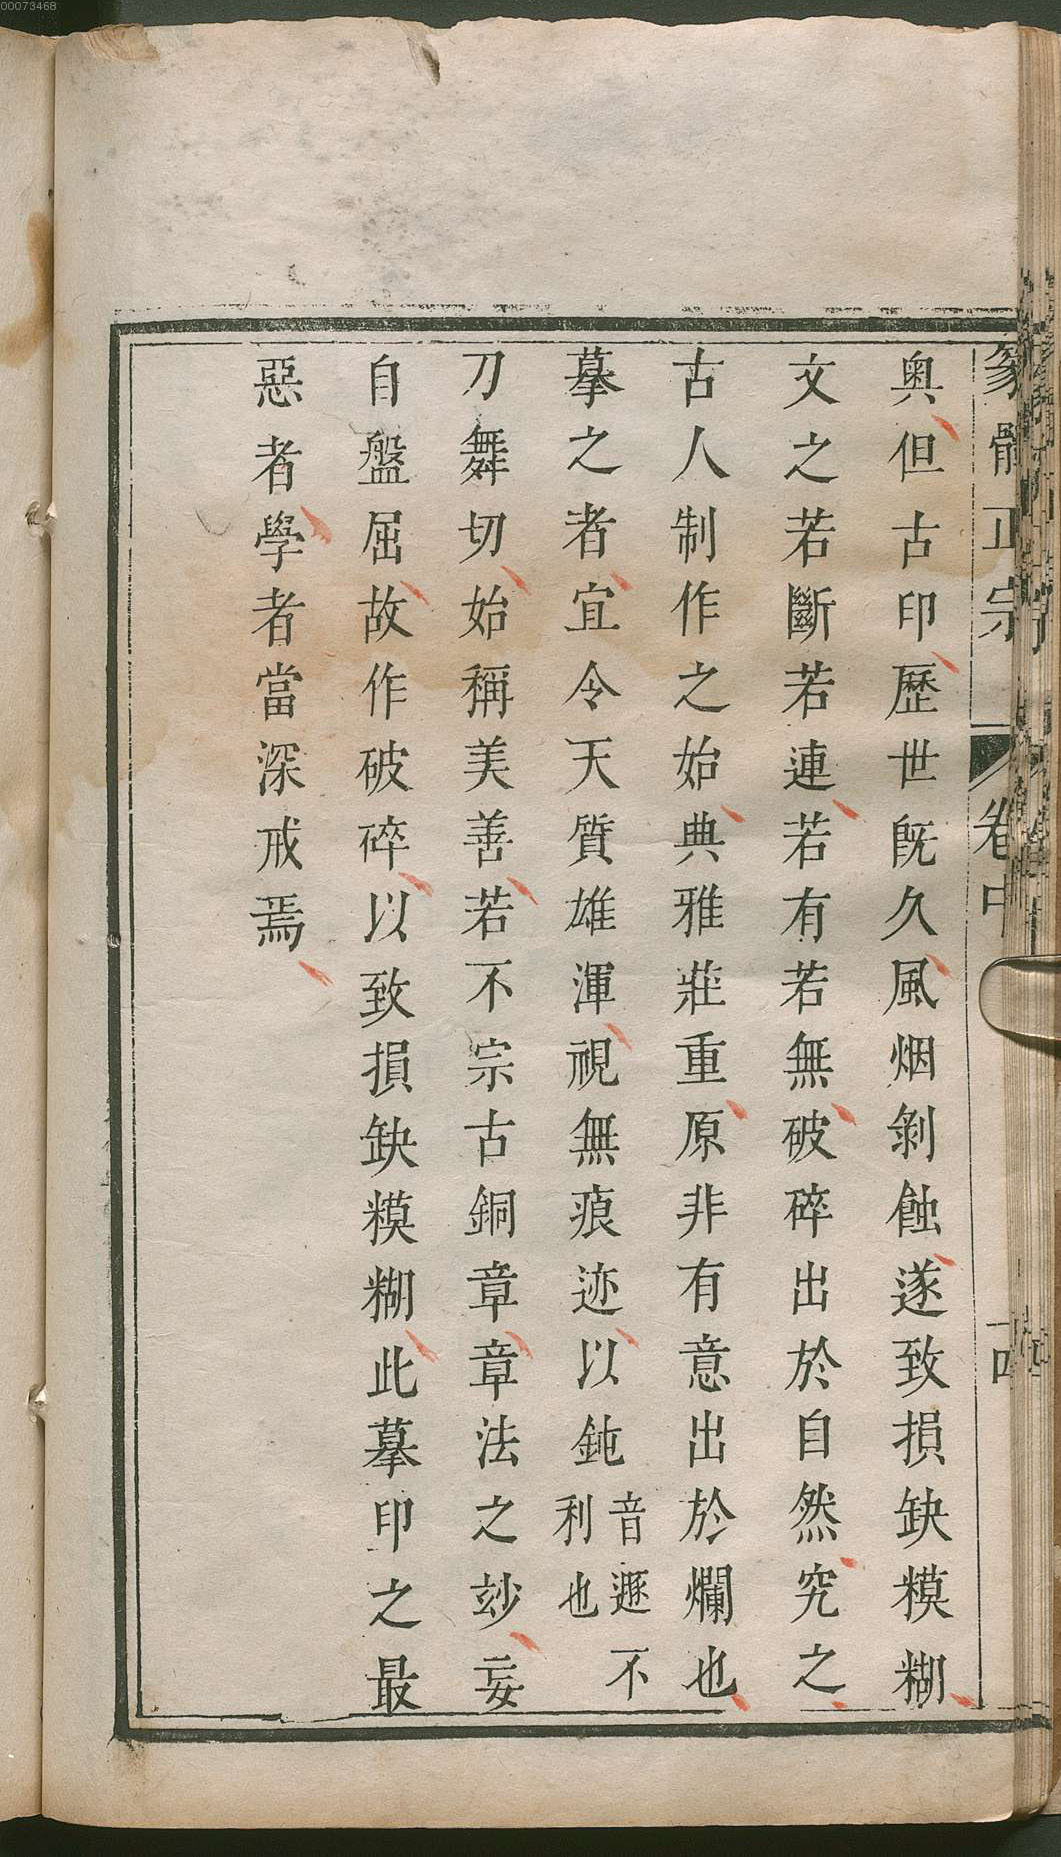 00073468
篆體正宗 卷中 十四
奥但古印歷世既久風烟剝蝕遂致損缺糢糊
文之若斷若連若有若無破碎出於自然究之
古人制作之始典雅莊重原非有意出於爛也
摹之者宜令天質雄渾視無痕迹以鈍音遯不利也
刀舞切始稱美善若不宗古銅章章法之玅妄
自盤屈故作破碎以致損缺糢糊此摹印之最
惡者學者當深戒焉